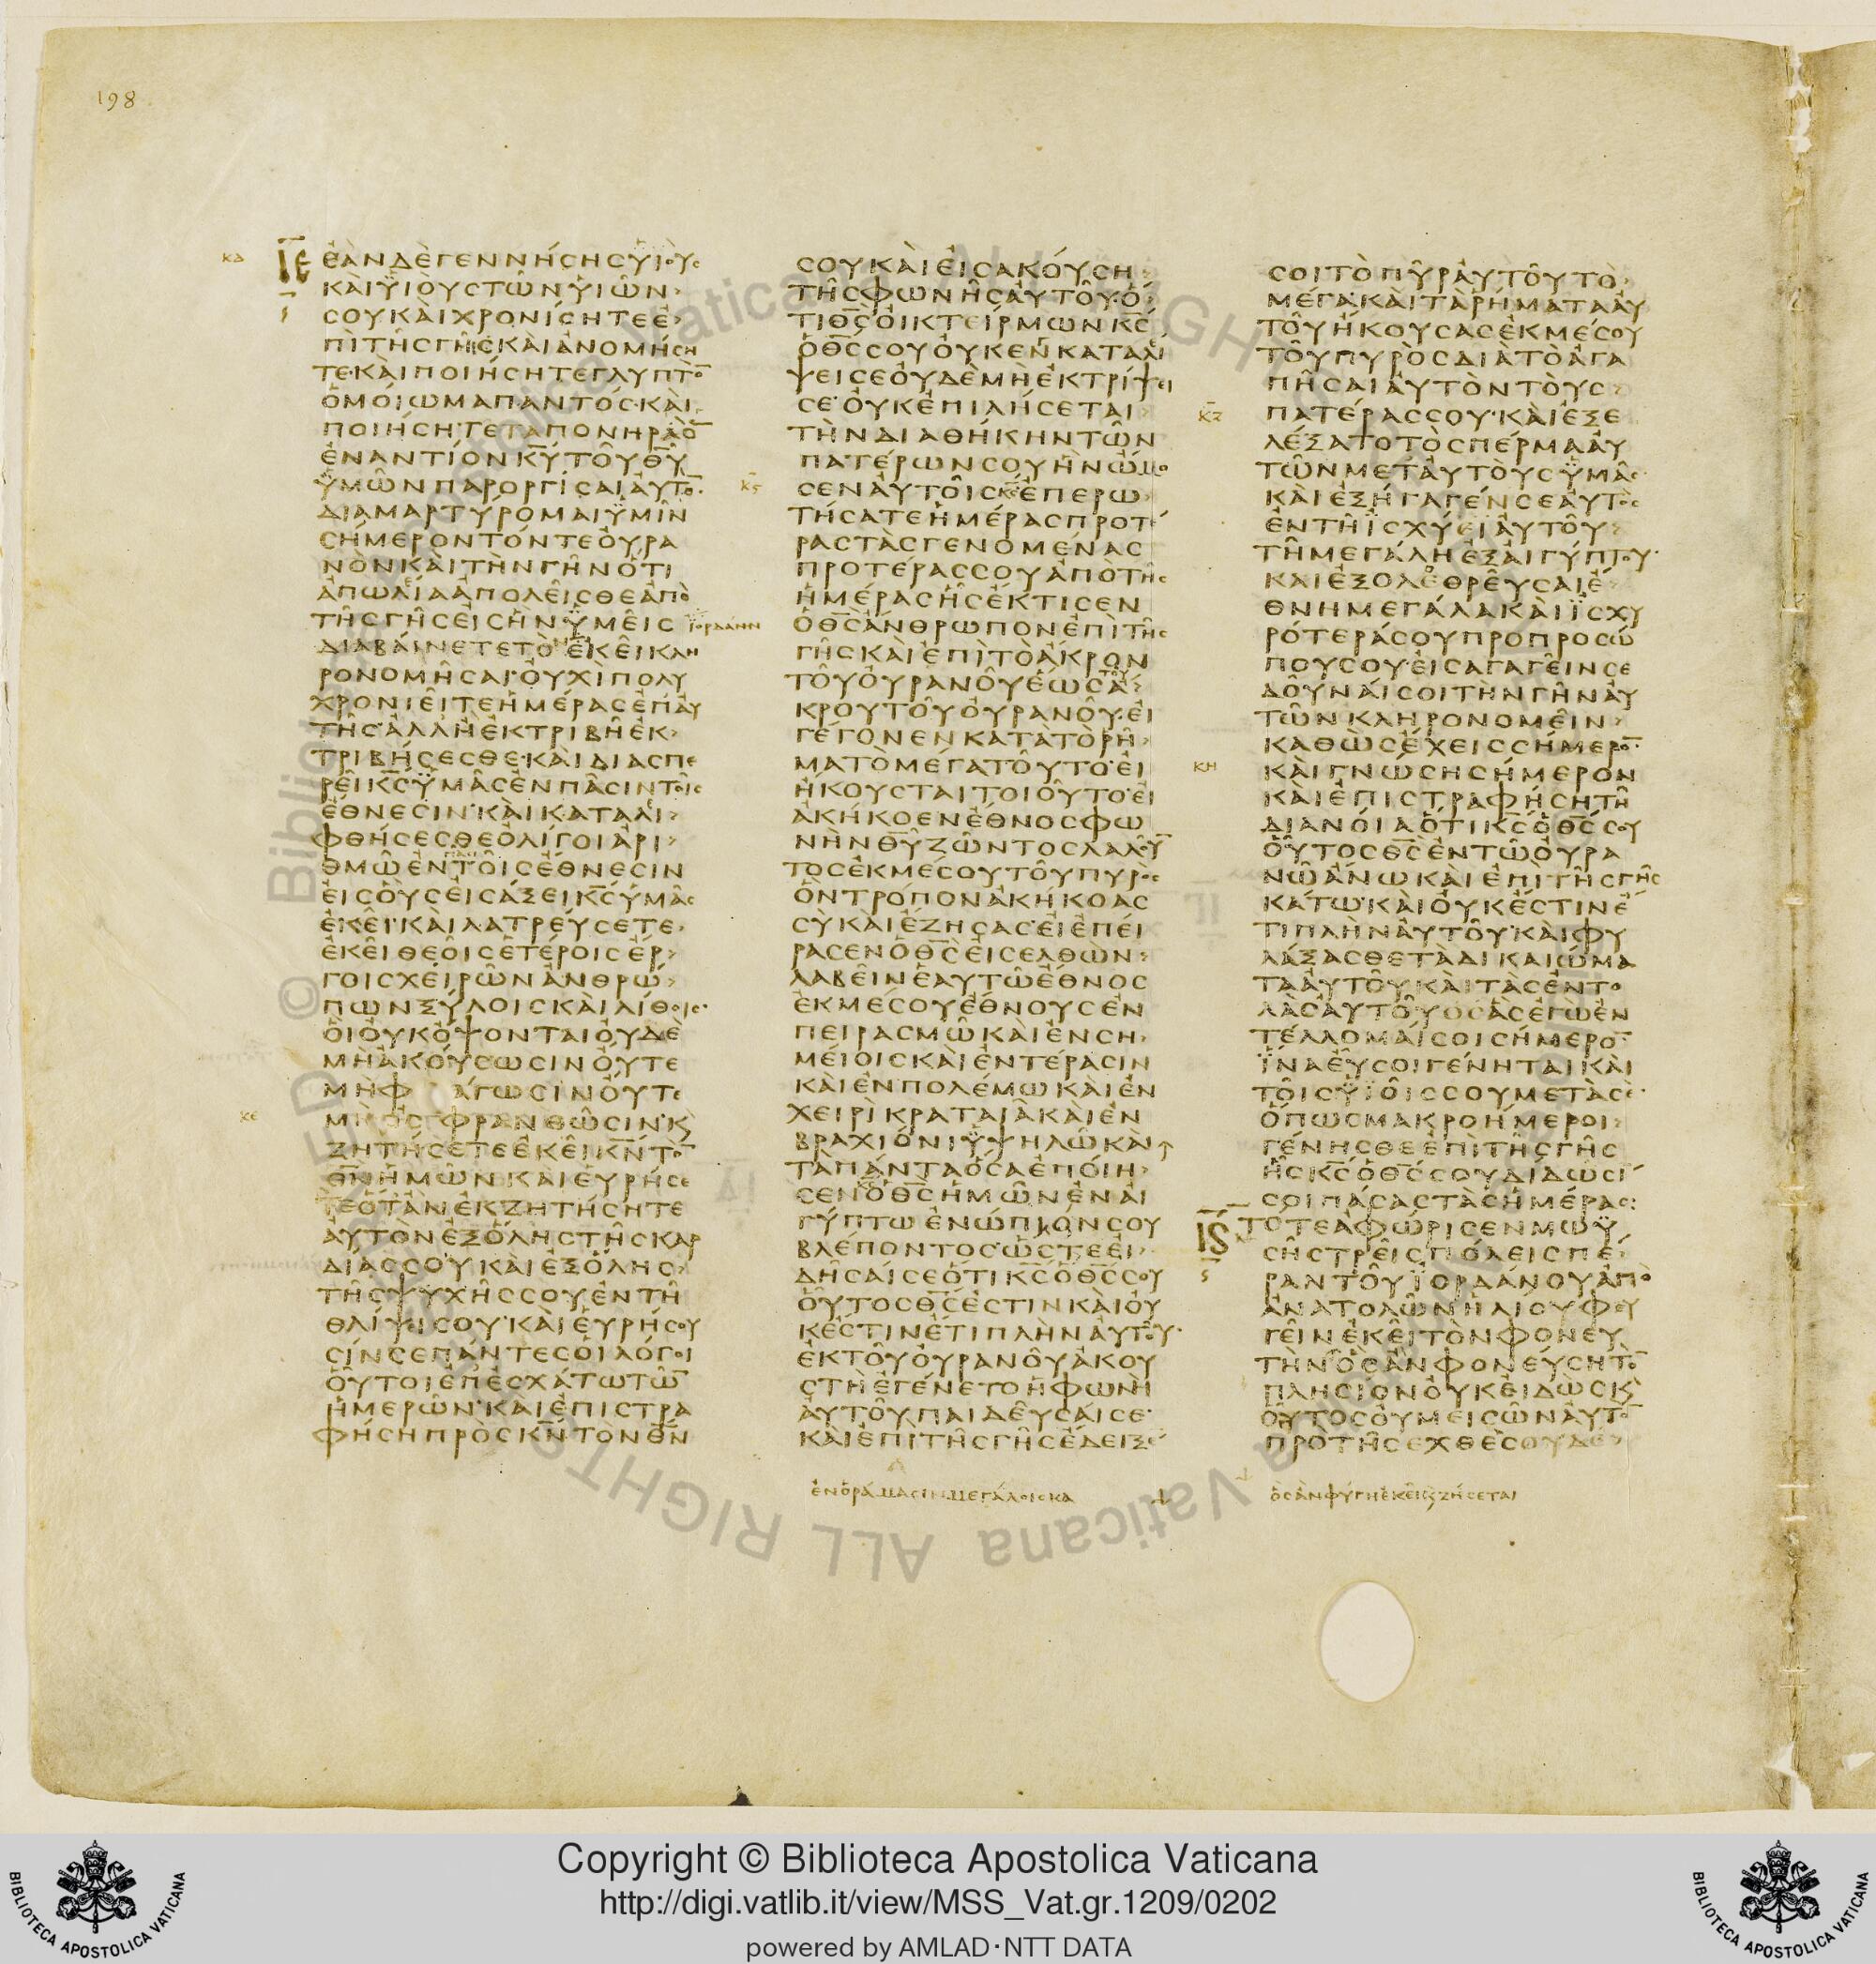 198
ΚΔ
ΙΕ
ΕΑΝΔΕΓΕΝΝΗΣΗΣΥΙΟΥΣ
ΚΑΙΥΙΟΥΣΤΩΝΥΙΩΝ
ΣΟΥΚΑΙΧΡΟΝΙΣΗΤΕΕ
ΠΙΤΗΣΓΗΣΚΑΙΑΝΟΜΗΣΗ
ΤΕΚΑΙΠΟΙΗΣΗΤΕΓΛΥΠΤΟ̅
ΟΜΟΙΩΜΑΠΑΝΤΟΣΚΑΙ
ΠΟΙΗΣΗΤΕΤΑΠΟΝΗΡΑΟ̅
ΕΝΑΝΤΙΟΝΚΥ̅ΤΟΥΘΥ̅
ΥΜΩΝΠΑΡΟΡΓΙΣΑΙΑΥΤΟ̅
ΔΙΑΜΑΡΤΥΡΟΜΑΙΥΜΙΝ
ΣΗΜΕΡΟΝΤΟΝΤΕΟΥΡΑ
ΝΟΝΚΑΙΤΗΝΓΗΝΟΤΙ
ΑΠΩΛΙΑΑΠΟΛΕΙΣΘΕΑΠΟ
ΤΗΣΓΗΣΕΙΣΗΝΥΜΕΙΣ ΙΟΡΔΑΝΗΝ
ΔΙΑΒΑΙΝΕΤΕΤΟ̅ΕΚΕΙΚΛΗ
ΡΟΝΟΜΗΣΑΙΟΥΧΙΠΟΛΥ
ΧΡΟΝΙΕΙΤΕΗΜΕΡΑΣΕΠΑΥ
ΤΗΣΑΛΛΗΕΚΤΡΙΒΗΕΚ
ΤΡΙΒΗΣΕΣΘΕΚΑΙΔΙΑΣΠΕ
ΡΕΙΚΣ̅ΥΜΑΣΕΝΠΑΣΙΝΤΟΙΣ
ΕΘΝΕΣΙΝΚΑΙΚΑΤΑΛΙ
ΦΘΗΣΕΣΘΕΟΛΙΓΟΙΑΡΙ
ΘΜΩΕΝΤΟΙΣΕΘΝΕΣΙΝ
ΕΙΣΟΥΣΕΙΣΑΞΕΙΚΣ̅ΥΜΑΣ
ΕΚΕΙΚΑΙΛΑΤΡΕΥΣΕΤΕ
ΕΚΕΙΘΕΟΙΣΕΤΕΡΟΙΣΕΡ
ΓΟΙΣΧΕΙΡΩΝΑΝΘΡΩ
ΠΩΝΞΥΛΟΙΣΚΑΙΛΙΘΟΙΣ
ΟΙΟΥΚΟΨΟΝΤΑΙΟΥΔΕ
ΜΗΑΚΟΥΣΩΣΙΝΟΥΤΕ
ΜΗΦΑΓΩΣΙΝΟΥΤΕ
ΚΕ
ΜΗΟΣΦΡΑΝΘΩΣΙΝΚ
ΖΗΤΗΣΕΤΕΕΚΕΙΚΝ̅ΤΟ̅
ΘΝ̅ΗΜΩΝΚΑΙΕΥΡΗΣΕ
ΤΕΟΤΑΝΕΚΖΗΤΗΣΗΤΕ
ΑΥΤΟΝΕΞΟΛΗΣΤΗΣΚΑΡ
ΔΙΑΣΣΟΥΚΑΙΕΞΟΛΗΣ
ΤΗΣΨΥΧΗΣΣΟΥΕΝΤΗ
ΘΛΙΨΕΙΣΟΥΚΑΙΕΥΡΗΣΟΥ
ΣΙΝΣΕΠΑΝΤΕΣΟΙΛΟΓΟΙ
ΟΥΤΟΙΕΠΕΣΧΑΤΩΤΩ̅
ΗΜΕΡΩΝΚΑΙΕΠΙΣΤΡΑ
ΦΗΣΗΠΡΟΣΚΝ̅ΤΟΝΘΝ̅
ΣΟΥΚΑΙΕΙΣΑΚΟΥΣΗ
ΤΗΣΦΩΝΗΣΑΥΤΟΥΟ
ΤΙΘΣ̅ΟΙΚΤΕΙΡΜΩΝΚΣ̅
ΟΘΣ̅ΣΟΥΟΥΚΕΝΚΑΤΑΛΙ
ΨΕΙΣΕΟΥΔΕΜΗΕΚΤΡΙΨΕΙ
ΣΕΟΥΚΕΠΙΛΗΣΕΤΑΙ
ΤΗΝΔΙΑΘΗΚΗΝΤΩΝ
ΠΑΤΕΡΩΝΣΟΥΗΝΩΜΟ
ΚϚ
ΣΕΝΑΥΤΟΙΣΚΣ̅ΕΠΕΡΩ
ΤΗΣΑΤΕΗΜΕΡΑΣΠΡΟΤΕ
ΡΑΣΤΑΣΓΕΝΟΜΕΝΑΣ
ΠΡΟΤΕΡΑΣΣΟΥΑΠΟΤΗΣ
ΗΜΕΡΑΣΗΣΕΚΤΙΣΕΝ
ΟΘΣ̅ΑΝΘΡΩΠΟΝΕΠΙΤΗΣ
ΓΗΣΚΑΙΕΠΙΤΟΑΚΡΟΝ
ΤΟΥΟΥΡΑΝΟΥΕΩΣΑ
ΚΡΟΥΤΟΥΟΥΡΑΝΟΥΕΙ
ΓΕΓΟΝΕΝΚΑΤΑΤΟΡΗ
ΜΑΤΟΜΕΓΑΤΟΥΤΟΕΙ
ΗΚΟΥΣΤΑΙΤΟΙΟΥΤΟΕΙ
ΑΚΗΚΟΕΝΕΘΝΟΣΦΩ
ΝΗΝΘΥ̅ΖΩΝΤΟΣΛΑΛΟΥ̅
ΤΟΣΕΚΜΕΣΟΥΤΟΥΠΥΡΟΣ
ΟΝΤΡΟΠΟΝΑΚΗΚΟΑΣ
ΣΥΚΑΙΕΖΗΣΑΣΕΙΕΠΕΙ
ΡΑΣΕΝΟΘΣ̅ΕΙΣΕΛΘΩΝ
ΛΑΒΕΙΝΕΑΥΤΩΕΘΝΟΣ
ΕΚΜΕΣΟΥΕΘΝΟΥΣΕΝ
ΠΕΙΡΑΣΜΩΚΑΙΕΝΣΗ
ΜΕΙΟΙΣΚΑΙΕΝΤΕΡΑΣΙΝ
ΚΑΙΕΝΠΟΛΕΜΩΚΑΙΕΝ
ΧΕΙΡΙΚΡΑΤΑΙΑΚΑΙΕΝ
ΒΡΑΧΙΟΝΙΥΨΗΛΩΚΑ
ΤΑΠΑΝΤΑΟΣΑΕΠΟΙΗ
ΣΕΝΟΘΣ̅ΗΜΩΝΕΝΑΙ
ΓΥΠΤΩΕΝΩΠΙΟΝΣΟΥ
ΒΛΕΠΟΝΤΟΣΩΣΤΕΕΙ
ΔΗΣΑΙΣΕΟΤΙΚΣ̅ΟΘΣ̅ΣΟΥ
ΟΥΤΟΣΘΣ̅ΕΣΤΙΝΚΑΙΟΥ
ΚΕΣΤΙΝΕΤΙΠΛΗΝΑΥΤΟΥ
ΕΚΤΟΥΟΥΡΑΝΟΥΑΚΟΥ
ΣΤΗΕΓΕΝΕΤΟΗΦΩΝΗ
ΑΥΤΟΥΠΑΙΔΕΥΣΑΙΣΕ
ΚΑΙΕΠΙΤΗΣΓΗΣΕΔΕΙΞΕ
ΕΝΟΡΑΜΑΣΙΝΜΕΓΑΛΟΙΣΚΑ
ΣΟΙΤΟΠΥΡΑΥΤΟΥΤΟ
ΜΕΓΑΚΑΙΤΑΡΗΜΑΤΑΑΥ
ΤΟΥΗΚΟΥΣΑΣΕΚΜΕΣΟΥ
ΤΟΥΠΥΡΟΣΔΙΑΤΟΑΓΑ
ΠΗΣΑΙΑΥΤΟΝΤΟΥΣ
ΚΖ
ΠΑΤΕΡΑΣΣΟΥΚΑΙΕΞΕ
ΛΕΞΑΤΟΤΟΣΠΕΡΜΑΑΥ
ΤΩΝΜΕΤΑΥΤΟΥΣΥΜΑΣ
ΚΑΙΕΞΗΓΑΓΕΝΣΕΑΥΤΟΣ
ΕΝΤΗΙΣΧΥΕΙΑΥΤΟΥ
ΤΗΜΕΓΑΛΗΕΞΑΙΓΥΠΤΟΥ
ΚΑΙΕΞΟΛΕΘΡΕΥΣΑΙΕ
ΘΝΗΜΕΓΑΛΑΚΑΙΙΣΧΥ
ΡΟΤΕΡΑΣΟΥΠΡΟΠΡΟΣΩ
ΠΟΥΣΟΥΕΙΣΑΓΑΓΕΙΝΣΕ
ΔΟΥΝΑΙΣΟΙΤΗΝΓΗΝΑΥ
ΤΩΝΚΛΗΡΟΝΟΜΕΙΝ
ΚΑΘΩΣΕΧΕΙΣΣΗΜΕΡΟ̅
ΚΗ
ΚΑΙΓΝΩΣΗΣΗΜΕΡΟΝ
ΚΑΙΕΠΙΣΤΡΑΦΗΣΗΤΗ
ΔΙΑΝΟΙΑΟΤΙΚΣ̅ΟΘΣ̅ΣΟΥ
ΟΥΤΟΣΘΣ̅ΕΝΤΩΟΥΡΑ
ΝΩΑΝΩΚΑΙΕΠΙΤΗΣΓΗΣ
ΚΑΤΩΚΑΙΟΥΚΕΣΤΙΝΕ
ΤΙΠΛΗΝΑΥΤΟΥΚΑΙΦΥ
ΛΑΞΑΣΘΕΤΑΔΙΚΑΙΩΜΑ
ΤΑΑΥΤΟΥΚΑΙΤΑΣΕΝΤΟ
ΛΑΣΑΥΤΟΥΟΣΑΣΕΓΩΕΝ
ΤΕΛΛΟΜΑΙΣΟΙΣΗΜΕΡΟ̅
ΙΝΑΕΥΣΟΙΓΕΝΗΤΑΙΚΑΙ
ΤΟΙΣΥΙΟΙΣΣΟΥΜΕΤΑΣΕ
ΟΠΩΣΜΑΚΡΟΗΜΕΡΟΙ
ΓΕΝΗΣΘΕΕΠΙΤΗΣΓΗΣ
ΗΣΚΣ̅ΟΘΣ̅ΣΟΥΔΙΔΩΣΙ
ΣΟΙΠΑΣΑΣΤΑΣΗΜΕΡΑΣ:
ΙϚ
ΤΟΤΕΑΦΩΡΙΣΕΝΜΩΥ
ΣΗΣΤΡΕΙΣΠΟΛΕΙΣΠΕ
ΡΑΝΤΟΥΙΟΡΔΑΝΟΥΑΠΟ
ΑΝΑΤΟΛΩΝΗΛΙΟΥΦΕΥ
ΓΕΙΝΕΚΕΙΤΟΝΦΟΝΕΥ
ΤΗΝΟΣΑΝΦΟΝΕΥΣΗΤΟ̅
ΠΛΗΣΙΟΝΟΥΚΕΙΔΩΣΚ
ΟΥΤΟΣΟΥΜΕΙΣΩΝΑΥΤΟ̅
ΠΡΟΤΗΣΕΧΘΕΣΟΥΔΕ
ΟΣΑΝΦΥΓΗΕΚΕΙΚΖΗΣΕΤΑΙ
Copyright © Biblioteca Apostolica Vaticana
http://digi.vatlib.it/view/MSS_Vat.gr.1209/0202
powered by AMLAD·NTT DATA
BIBLIOTECA APOSTOLICA VATICANA
BIBLIOTECA APOSTOLICA VATICANA